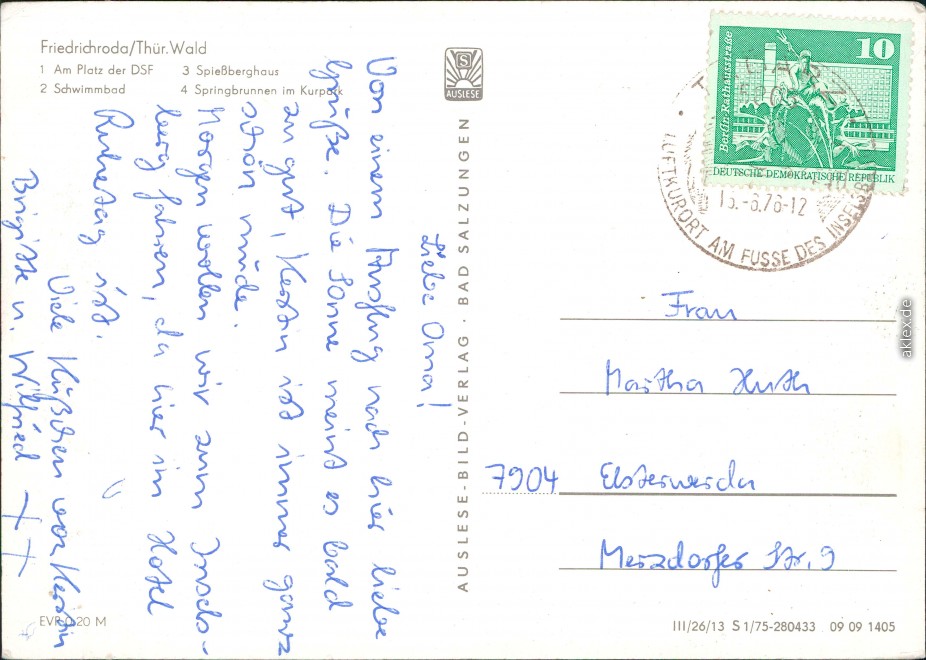 Friedrichroda/Thür. Wald
1 Am Platz der DSF 3 Spießberghaus
2 Schwimmbad 4 Springbrunnen im Kurpark
S
AUSLESE
AUSLESE-BILD-VERLAG · BAD SALZUNGEN
Liebe Oma!
Von einem Ausflug nach hier liebe
Grüße. Die Sonne meint es bald
zu gut, Kerstin ist immer ganz
schön müde.
Morgen wollen wir zum Insels-
berg fahren, da hier im Hotel
Ruhetag ist.
Viele Küßchen von Kerstin
Birgitte u. Wilfried ++
10
Berlin, Rathausstraße
DEUTSCHE DEMOKRATISCHE REPUBLIK
TABARZ
5808
-6.76-12
LUFTKURORT AM FUSSE DES INSELSB
Frau
Martha Huth
7904 Elsterwerda
Merzdorfer Str. 9
EVP 0,20 M
III/26/13 S 1/75-280433 09 09 1405
aklex.de